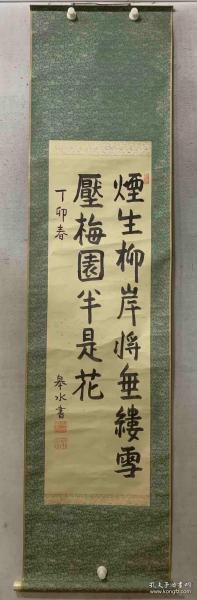 煙生柳岸將垂縷雪
壓梅園半是花
丁卯春
皋水書
孔夫子旧书网
www.kongfz.com